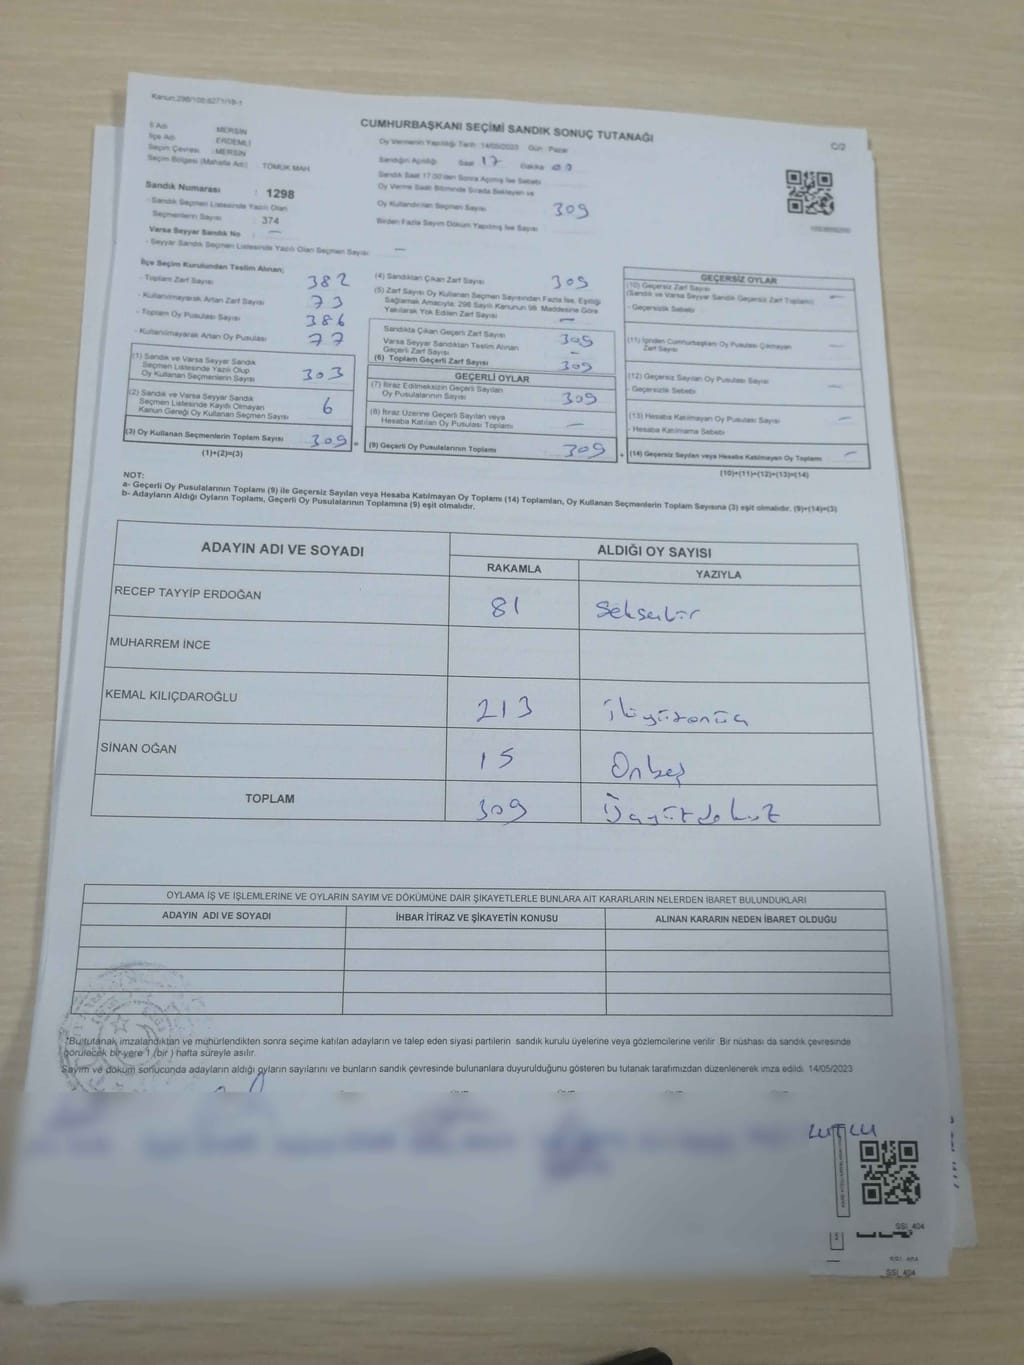 Kanun:298/105:6271/18-1
CUMHURBAŞKANI SEÇİMİ SANDIK SONUÇ TUTANAĞI
C/2
İl Adı : MERSİN
İlçe Adı : ERDEMLİ
Seçim Çevresi : MERSİN
Seçim Bölgesi (Mahalle Adı) : TÖMÜK MAH
Sandık Numarası : 1298
- Sandık Seçmen Listesinde Yazılı Olan
Seçmenlerin Sayısı : 374
Varsa Seyyar Sandık No : —
- Seyyar Sandık Seçmen Listesinde Yazılı Olan Seçmen Sayısı : —
Oy Vermenin Yapıldığı Tarih: 14/05/2023 Gün : Pazar
Sandığın Açıldığı Saat 17 Dakika 00
Sandık Saat 17:00'den Sonra Açılmış İse Sebebi
Oy Verme Saati Bitiminde Sırada Bekleyen ve
Oy Kullandırılan Seçmen Sayısı 309
Birden Fazla Sayım Döküm Yapılmış İse Sayısı
İlçe Seçim Kurulundan Teslim Alınan;
- Toplam Zarf Sayısı 382
- Kullanılmayarak Artan Zarf Sayısı 73
- Toplam Oy Pusulası Sayısı 386
- Kullanılmayarak Artan Oy Pusulası 77
(1) Sandık ve Varsa Seyyar Sandık
Seçmen Listesinde Yazılı Olup
Oy Kullanan Seçmenlerin Sayısı 303
(2) Sandık ve Varsa Seyyar Sandık
Seçmen Listesinde Kayıtlı Olmayan
Kanun Gereği Oy Kullanan Seçmen Sayısı 6
(3) Oy Kullanan Seçmenlerin Toplam Sayısı 309
(1)+(2)=(3)
(4) Sandıktan Çıkan Zarf Sayısı 309
(5) Zarf Sayısı Oy Kullanan Seçmen Sayısından Fazla İse, Eşitliği
Sağlamak Amacıyla; 298 Sayılı Kanunun 98. Maddesine Göre
Yakılarak Yok Edilen Zarf Sayısı —
Sandıkta Çıkan Geçerli Zarf Sayısı 309
Varsa Seyyar Sandıktan Teslim Alınan
Geçerli Zarf Sayısı —
(6) Toplam Geçerli Zarf Sayısı 309
GEÇERLİ OYLAR
(7) İtiraz Edilmeksizin Geçerli Sayılan
Oy Pusulalarının Sayısı 309
(8) İtiraz Üzerine Geçerli Sayılan veya
Hesaba Katılan Oy Pusulası Toplamı —
(9) Geçerli Oy Pusulalarının Toplamı 309
GEÇERSİZ OYLAR
(10) Geçersiz Zarf Sayısı
(Sandık ve Varsa Seyyar Sandık Geçersiz Zarf Toplamı) —
- Geçersizlik Sebebi
(11) İçinden Cumhurbaşkanı Oy Pusulası Çıkmayan
Zarf Sayısı —
(12) Geçersiz Sayılan Oy Pusulası Sayısı —
- Geçersizlik Sebebi
(13) Hesaba Katılmayan Oy Pusulası Sayısı —
- Hesaba Katılmama Sebebi
(14) Geçersiz Sayılan veya Hesaba Katılmayan Oy Toplamı —
(10)+(11)+(12)+(13)=(14)
NOT:
a- Geçerli Oy Pusulalarının Toplamı (9) ile Geçersiz Sayılan veya Hesaba Katılmayan Oy Toplamı (14) Toplamları, Oy Kullanan Seçmenlerin Toplam Sayısına (3) eşit olmalıdır. (9)+(14)=(3)
b- Adayların Aldığı Oyların Toplamı, Geçerli Oy Pusulalarının Toplamına (9) eşit olmalıdır.
ADAYIN ADI VE SOYADI
ALDIĞI OY SAYISI
RAKAMLA YAZIYLA
RECEP TAYYİP ERDOĞAN 81 Seksenbir
MUHARREM İNCE
KEMAL KILIÇDAROĞLU 213 İkiyüzonüç
SİNAN OĞAN 15 Onbeş
TOPLAM 309 Üçyüzdokuz
OYLAMA İŞ VE İŞLEMLERİNE VE OYLARIN SAYIM VE DÖKÜMÜNE DAİR ŞİKAYETLERLE BUNLARA AİT KARARLARIN NELERDEN İBARET BULUNDUKLARI
ADAYIN ADI VE SOYADI İHBAR İTİRAZ VE ŞİKAYETİN KONUSU ALINAN KARARIN NEDEN İBARET OLDUĞU
*Bu tutanak imzalandıktan ve mühürlendikten sonra seçime katılan adayların ve talep eden siyasi partilerin sandık kurulu üyelerine veya gözlemcilerine verilir. Bir nüshası da sandık çevresinde
görülecek bir yere 1 (bir) hafta süreyle asılır.
Sayım ve döküm sonucunda adayların aldığı oyların sayılarını ve bunların sandık çevresinde bulunanlara duyurulduğunu gösteren bu tutanak tarafımızdan düzenlenerek imza edildi. 14/05/2023
SSI_404
SSI_404